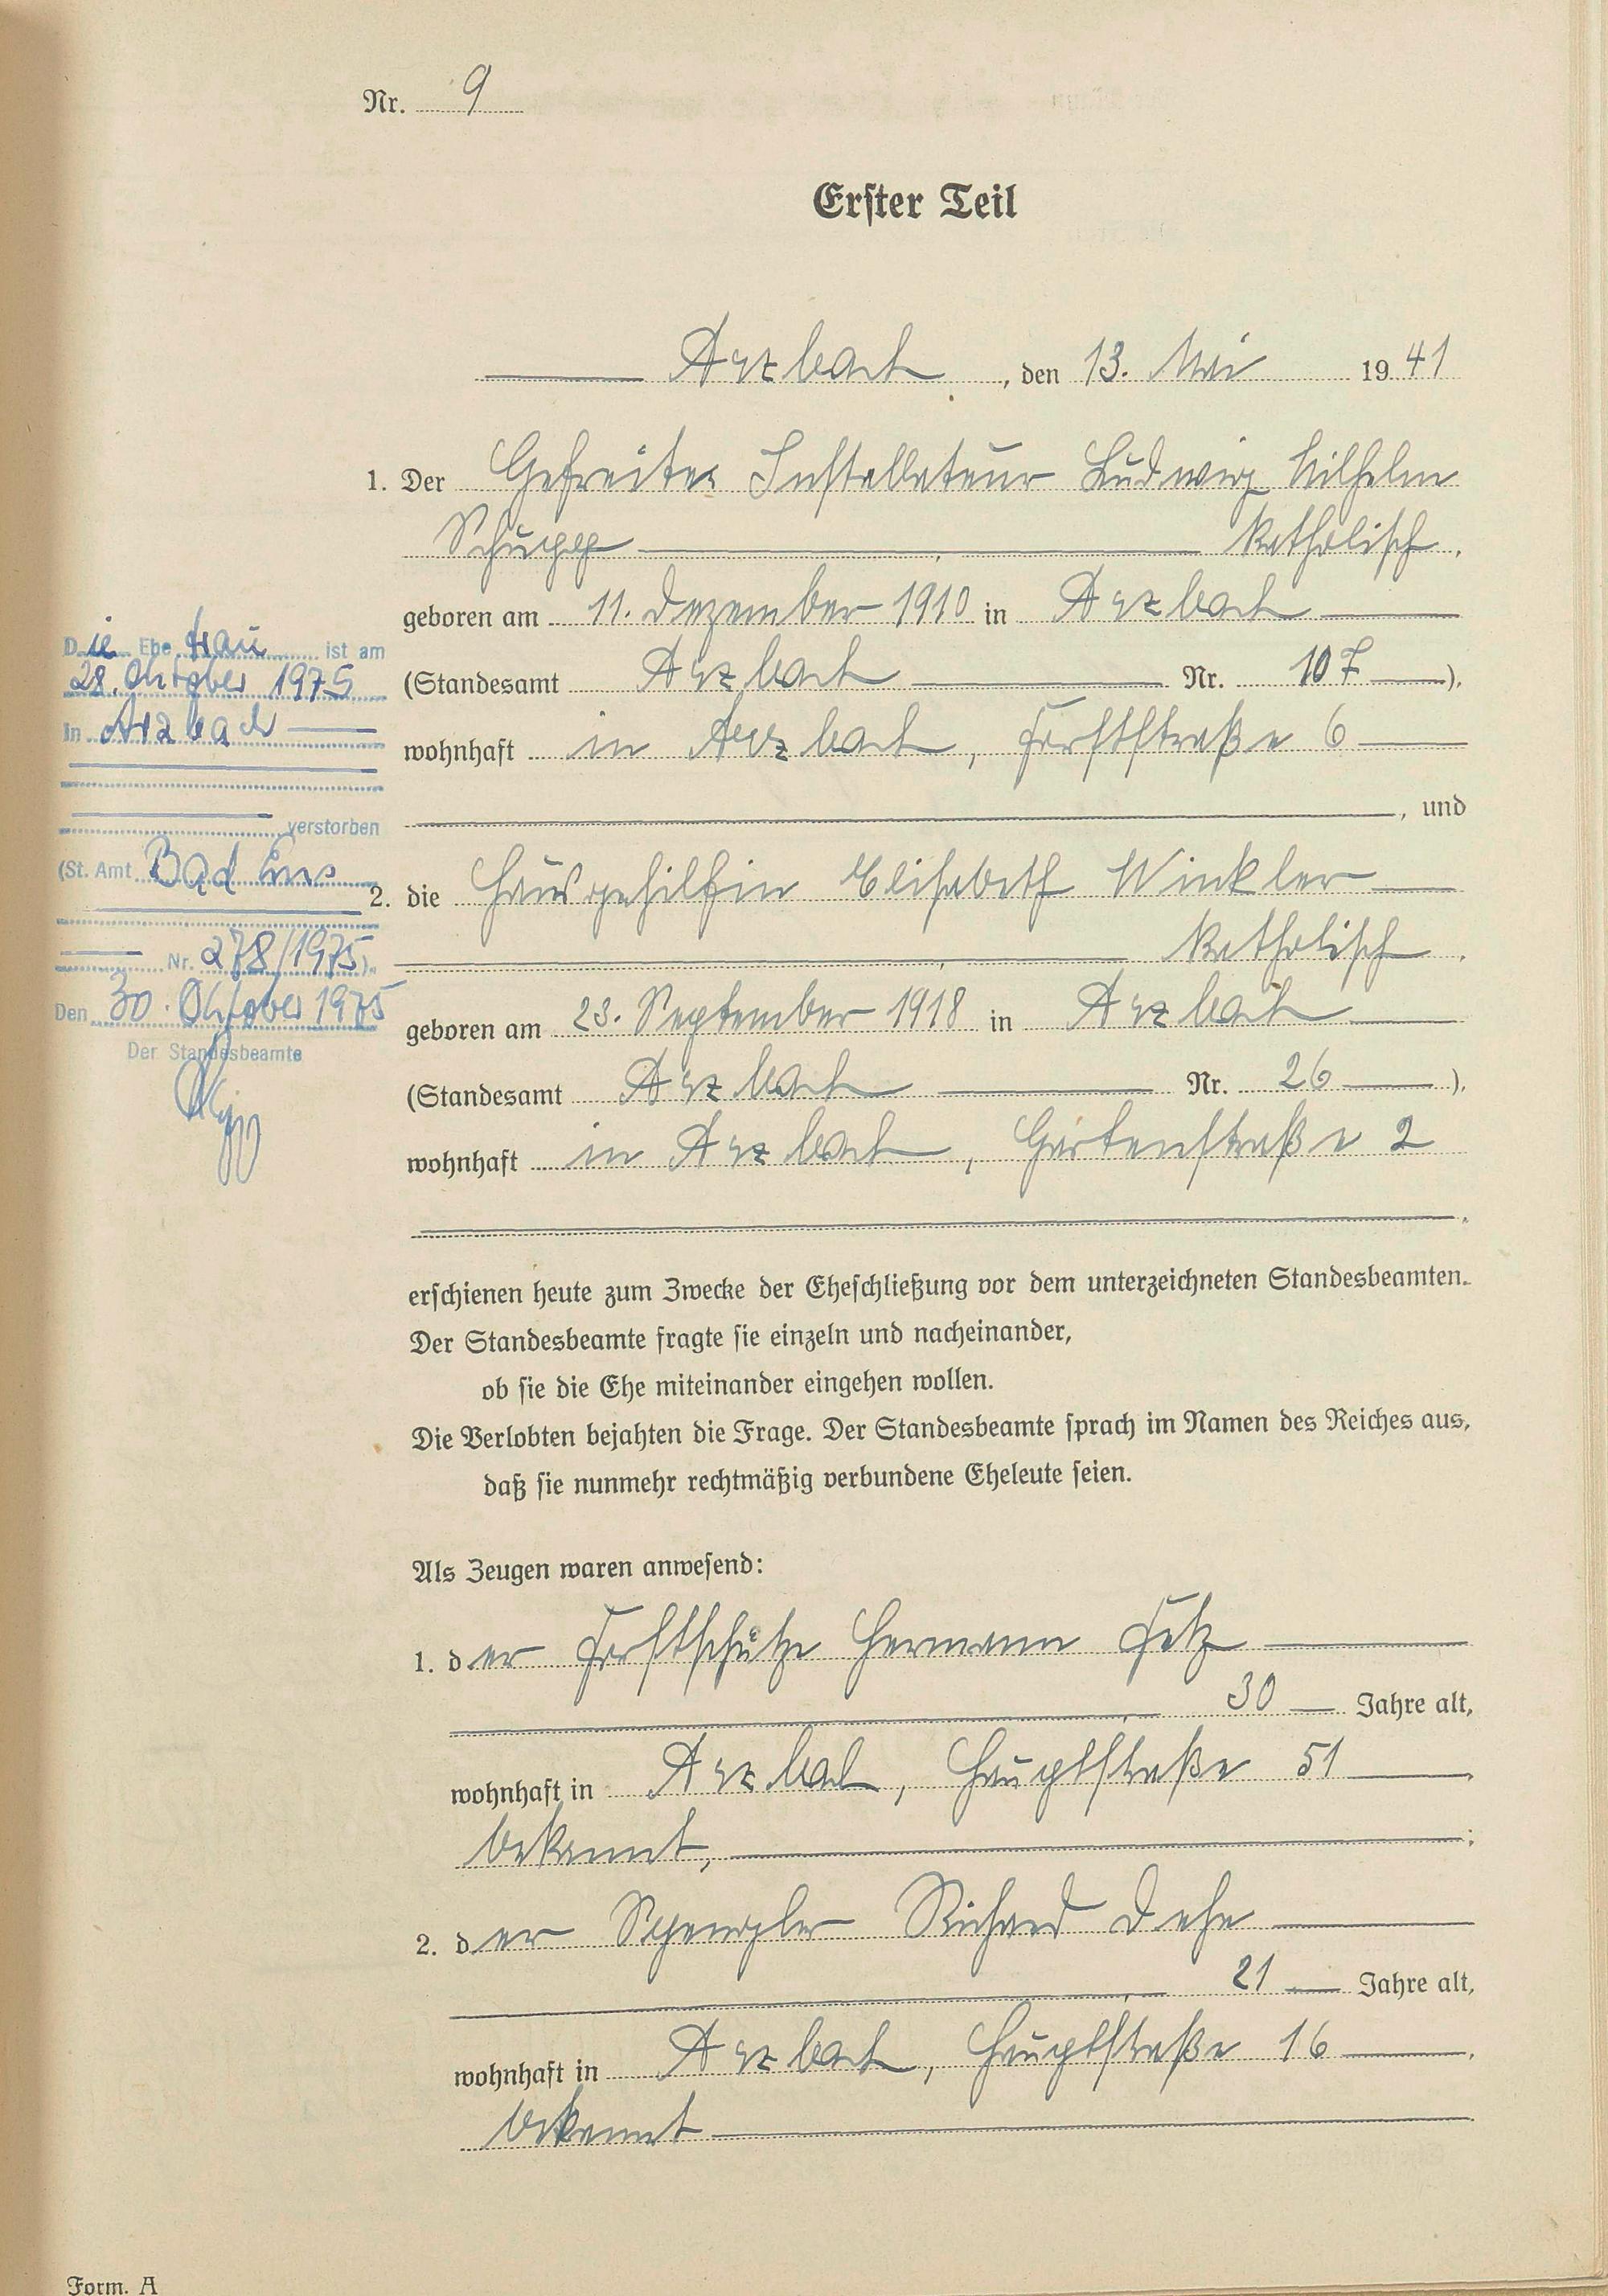 Nr. 9
Erster Teil
Arzbach, den 13. Mai 1941
1. Der Gefreiter Installateur Ludwig Wilhelm
Schupp, katholisch,
geboren am 11. Dezember 1910 in Arzbach
(Standesamt Arzbach Nr. 107),
wohnhaft in Arzbach, Forststraße 6
, und
2. die Hausgehilfin Elisabeth Winkler
, katholisch,
geboren am 23. September 1918 in Arzbach
(Standesamt Arzbach Nr. 26),
wohnhaft in Arzbach, Gartenstraße 2
.
erschienen heute zum Zwecke der Eheschließung vor dem unterzeichneten Standesbeamten.
Der Standesbeamte fragte sie einzeln und nacheinander,
ob sie die Ehe miteinander eingehen wollen.
Die Verlobten bejahten die Frage. Der Standesbeamte sprach im Namen des Reiches aus,
daß sie nunmehr rechtmäßig verbundene Eheleute seien.
Als Zeugen waren anwesend:
1. der Forstschütze Hermann Fetz
, 30 Jahre alt,
wohnhaft in Arzbach, Hauptstraße 51,
bekannt, ;
2. der Spengler Richard Dehe
, 21 Jahre alt,
wohnhaft in Arzbach, Hauptstraße 16,
bekannt.
Die Ehefrau ist am
28. Oktober 1975
in Arzbach
verstorben
(St. Amt Bad Ems
Nr. 278/1975).
Den 30. Oktober 1975
Der Standesbeamte
Form. A